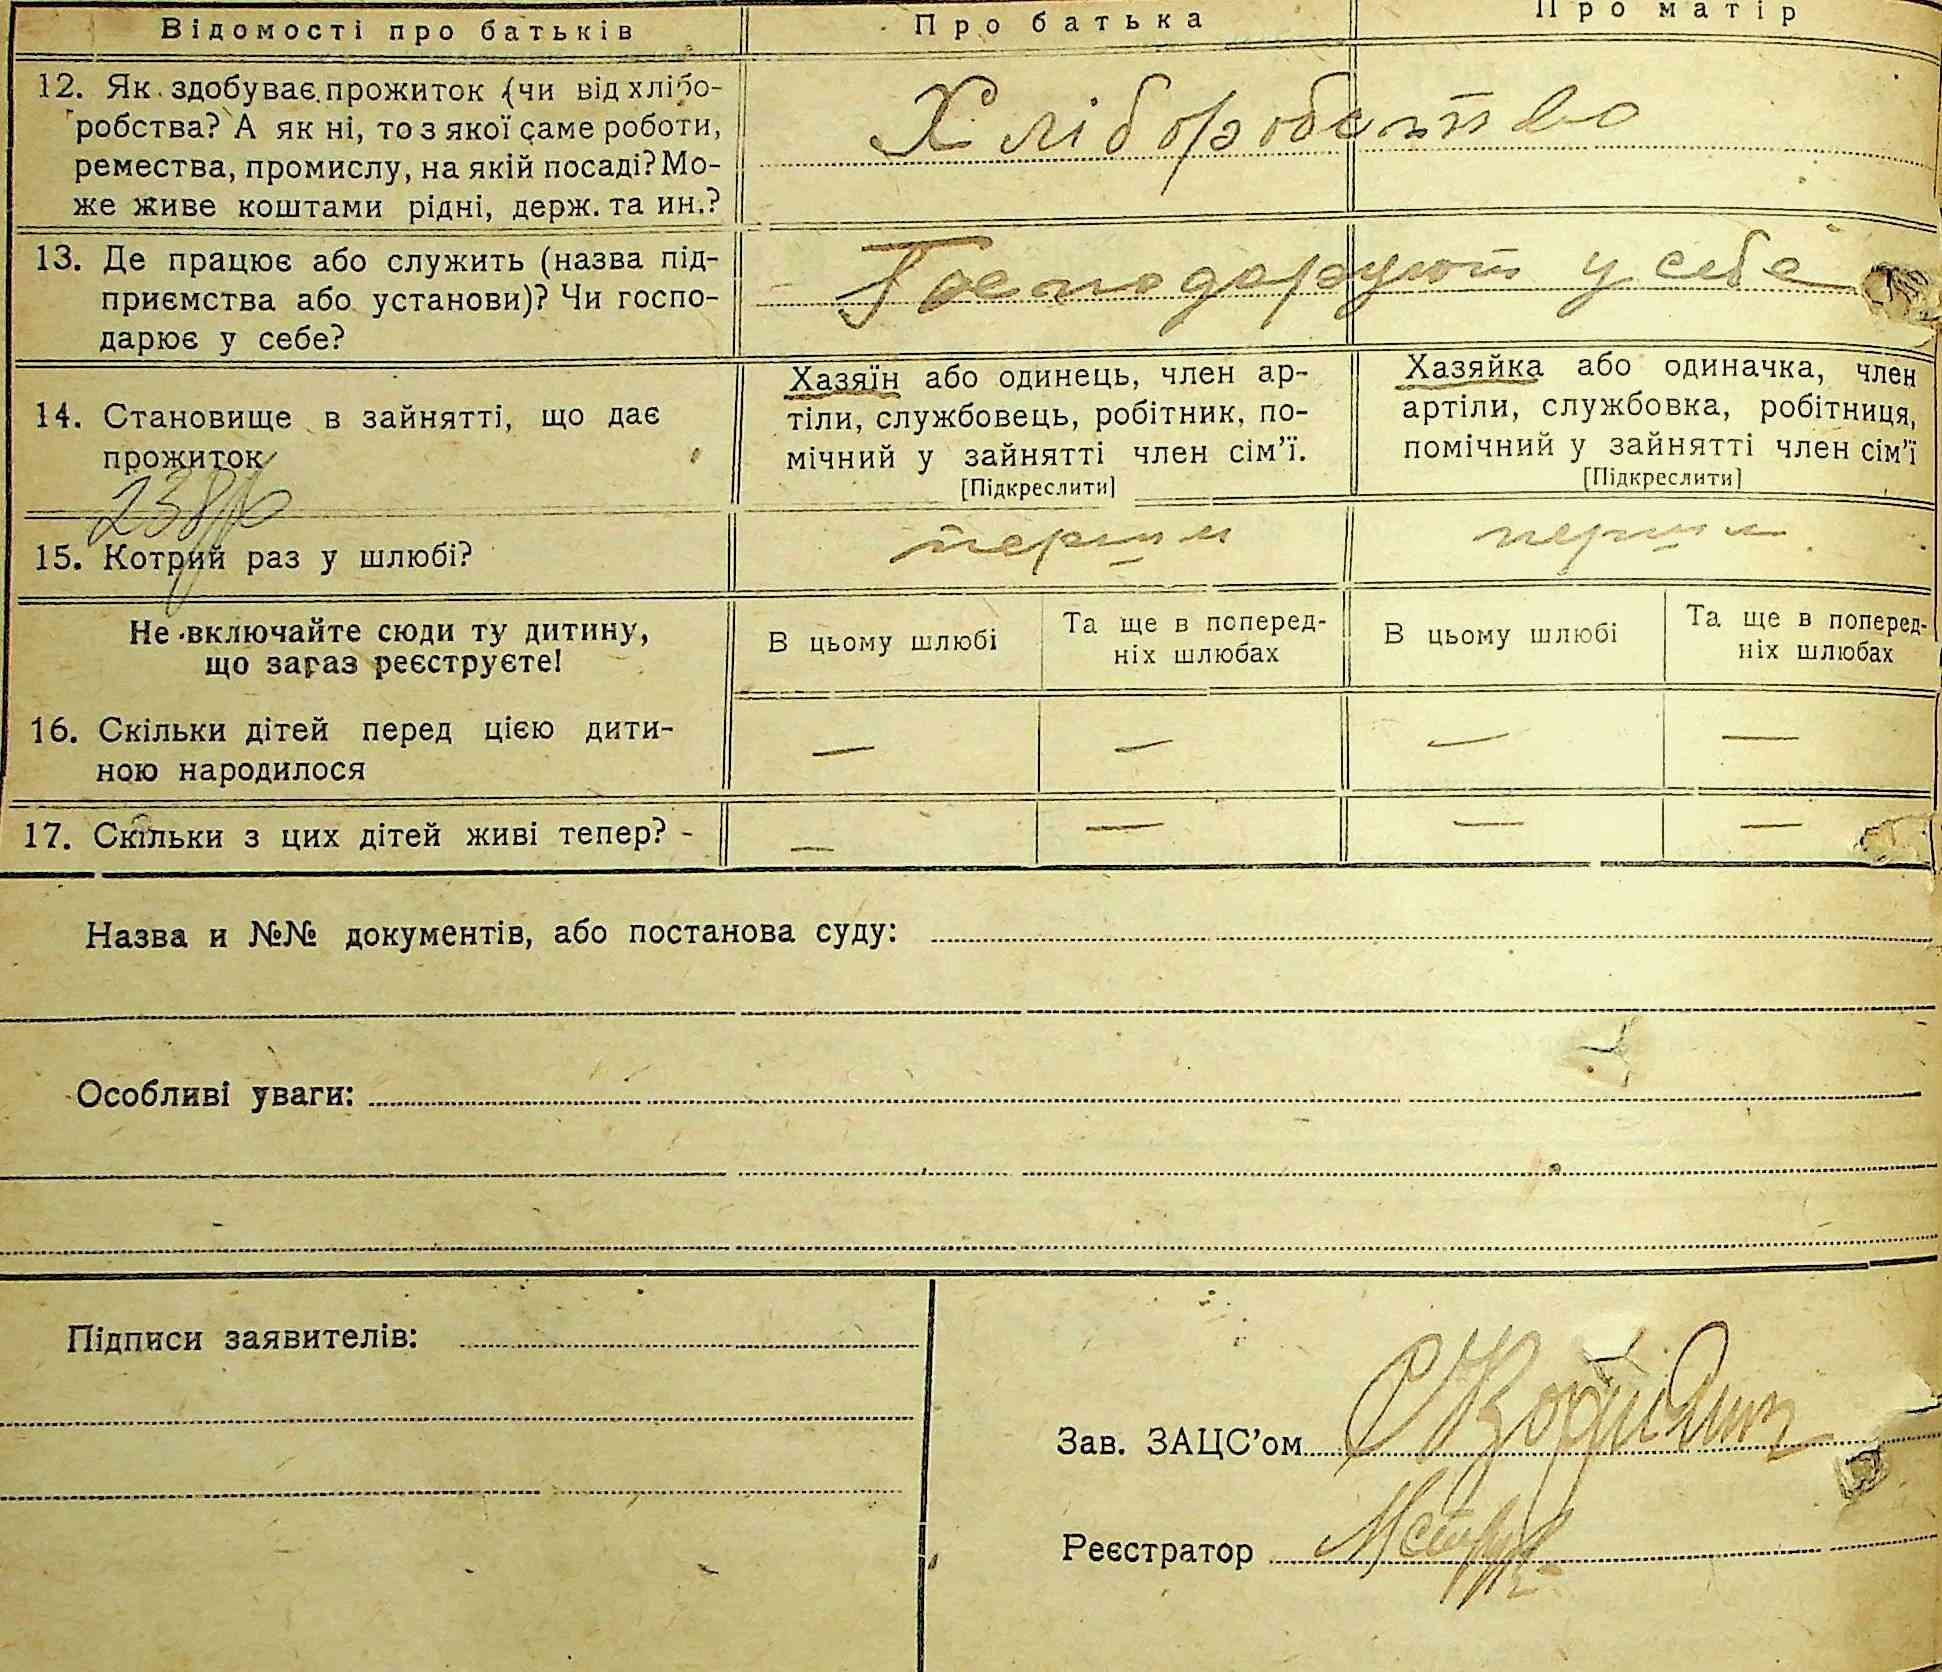 Відомості про батьків Про батька Про матір
12. Як здобуває прожиток (чи від хлібо-
робства? А як ні, то з якої саме роботи,
ремества, промислу, на якій посаді? Мо-
же живе коштами рідні, держ. та ин.?
Хліборобство
13. Де працює або служить (назва під-
приємства або установи)? Чи госпо-
дарює у себе?
Господарують у себе
14. Становище в зайнятті, що дає
прожиток
Хазяїн або одинець, член ар-
тіли, службовець, робітник, по-
мічний у зайнятті член сім'ї.
[Підкреслити]
Хазяйка або одиначка, член
артіли, службовка, робітниця,
помічний у зайнятті член сім'ї
[Підкреслити]
15. Котрий раз у шлюбі?
першим першим
Не включайте сюди ту дитину,
що зараз реєструєте!
В цьому шлюбі
Та ще в поперед-
ніх шлюбах
В цьому шлюбі
Та ще в поперед-
ніх шлюбах
16. Скільки дітей перед цією дити-
ною народилося
— — — —
17. Скільки з цих дітей живі тепер? -
— — — —
Назва и №№ документів, або постанова суду:
Особливі уваги:
Підписи заявителів:
Зав. ЗАЦС'ом
Реєстратор